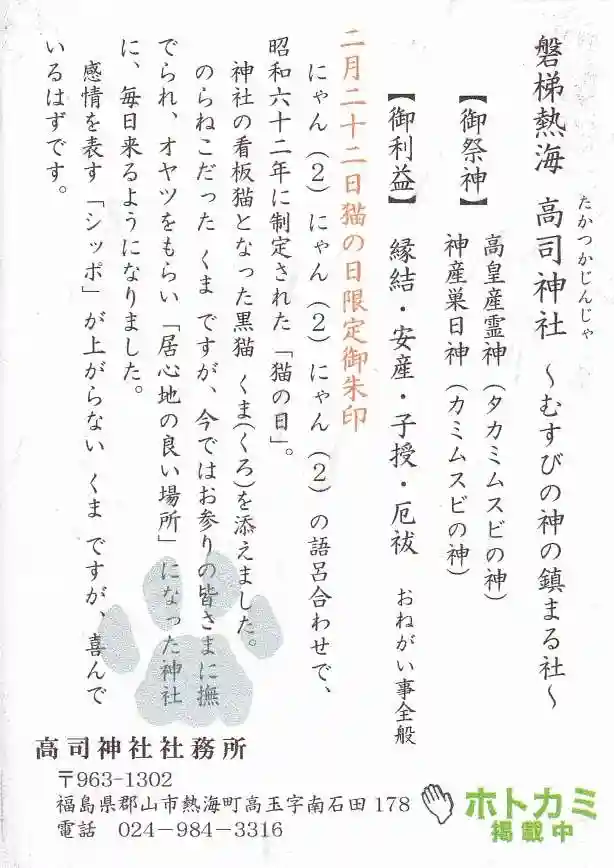 磐梯熱海 高司神社 ～むすびの神の鎮まる社～
たかつかじんじゃ
【御祭神】 高皇産霊神(タカミムスビの神)
神産巣日神(カミムスビの神)
【御利益】 縁結・安産・子授・厄祓 おねがい事全般
二月二十二日猫の日限定御朱印
にゃん(2)にゃん(2)にゃん(2)の語呂合わせで、
昭和六十二年に制定された「猫の日」。
神社の看板猫となった黒猫 くま(くろ)を添えました。
のらねこだった くま ですが、今ではお参りの皆さまに撫
でられ、オヤツをもらい「居心地の良い場所」になった神社
に、毎日来るようになりました。
感情を表す「シッポ」が上がらない くま ですが、喜んで
いるはずです。
高司神社社務所
〒963-1302
福島県郡山市熱海町高玉字南石田178
電話 024-984-3316
ホトカミ
掲載中